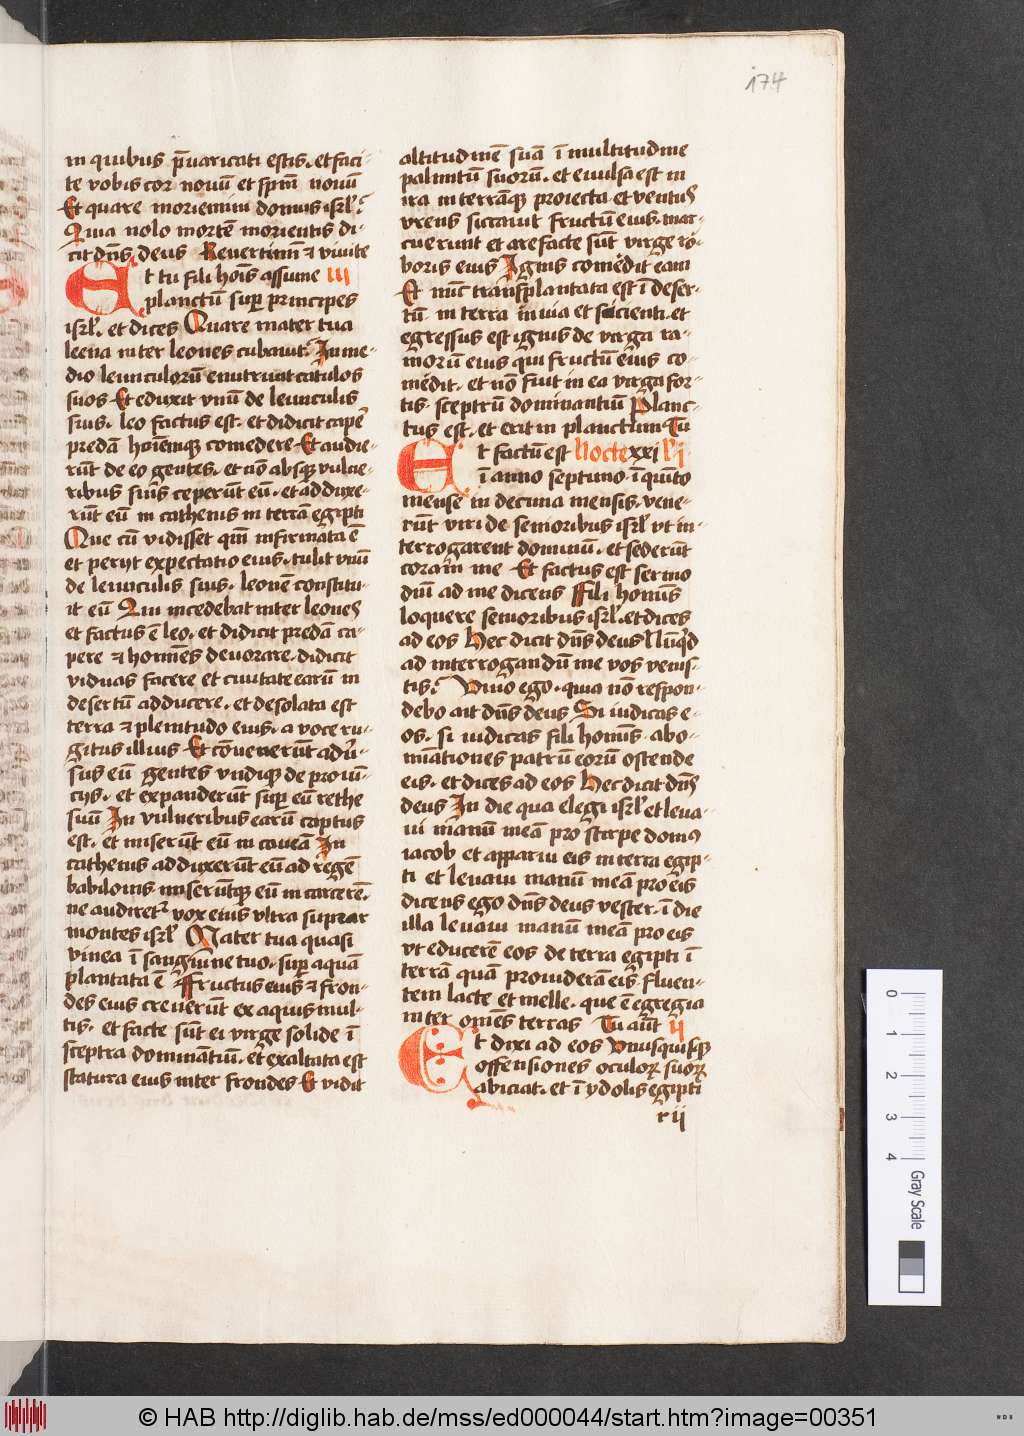 174
in quibus p̄uaricati estis. et faci-
te vobis cor nouū et spm̄ nouū
Et quare moriemini domus isrl̄?
Quia nolo mortē morientis di-
cit dn̄s deus Reuertimī ⁊ viuite
Et tu fili hoīs assume III
planctū sup̱ principes
isrl̄. et dices Quare mater tua
leena inter leones cubauit. In me-
dio leunculorū enutriuit catulos
suos Et eduxit vnū de leunculis
suis. leo factus est. et didicit cape̓
predā hoīemq̱ comedere Et audie-
rūt de eo gentes. et nō absq̱ vulne-
ribus suis ceperūt eū. et adduxe-
rūt eū in cathenis in terrā egipti
Que cū vidisset qm̄ infirmata ē
et perijt expectatio eius. tulit vnū
de leunculis suis. leonē constitu-
it eū Qui incedebat inter leones
et factus ē leo. et didicit predā ca-
pere ⁊ homīes deuorare. didicit
viduas facere et ciuitate earū in
desertū adducere. et desolata est
terra ⁊ plenitudo eius. a voce ru-
gitus illius Et cōuenerūt aduˀ-
sus eū gentes vndiq̱ de prouī-
cijs. et expanderūt sup̱ eū rethe
suū In vulneribus earū captus
est. et miserūt eū in caueā In
cathenis adduxerūt eū ad regē
babilonis. miserūtq̱ eū in carcerē.
ne audiret᷑ vox eius vltra super
montes isrl̄ Mater tua quasi
vinea ī sanguine tuo. sup̱ aquā
plantata ē Fructus eius ⁊ fron-
des eius creuerūt ex aquis mul-
tis. et facte sūt ei virge solide ī
sceptra dominātiū. et exaltata est
statura eius inter frondes Et vidit
altitudinē suā ī multitudine
palmitū suorū. et euulsa est in
ira in terrāq̱ proiecta et ventus
vrens siccauit fructū eius. mar-
cuerunt et arefacte sūt virge ro-
boris eius Ignis comēdit eam
Et nūc transplantata est ī deser-
tū in terra inuia et sicienti. et
egressus est ignis de virga ra-
morū eius qui fructū eius co-
mēdit. et nō fuit in ea virga for-
tis. sceptrū dominantiū Planc-
tus est. et erit in planctum Tu
Et factū est Nocte xxi l'i
ī anno septimo. ī quīto
mense in decima mensis. vene-
rūt viri de senioribus isrl̄ vt in-
terrogarent dominū. et sederūt
coram me Et factus est sermo
dn̄i ad me dicens Fili homīs
loquere senioribus isrl̄. et dices
ad eos Hec dicit dn̄s deus Nūq̓d
ad interrogandū me vos venis-
tis? Viuo ego. quia nō respon-
debo ait dn̄s deus Si iudicas e-
os. si iudicas fili homīs. abo-
mīationes patrū eorū ostende
eis. et dices ad eos Hec dicit dn̄s
deus In die qua elegi isrl̄ et leua-
ui manū meā pro stirpe domꝰ
iacob et apparui eis in terra egip-
ti et leuaui manū meā pro eis
dicens ego dn̄s deus vester. ī die
illa leuaui manū meā pro eis
vt educerē eos de terra egipti ī
terrā quā prouiderā eis. fluen-
tem lacte et melle. que ē egregia
inter omēs terras Tu aūt ii
Et dixi ad eos Vnusquisq̱
offensiones oculoꝝ suoꝝ
abiciat. et ī ydolis egipti
r ij
0 1 2 3 4
Gray Scale
© HAB http://diglib.hab.de/mss/ed000044/start.htm?image=00351